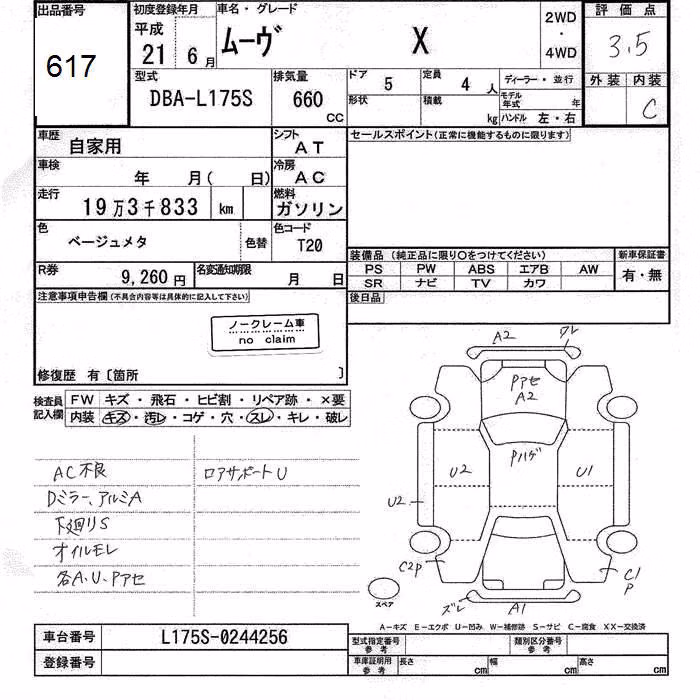 出品番号
617
初度登録年月
平成
21 6月
車名・グレード
ムーヴ X
2WD
・
4WD
評価点
3.5
外装 内装
C
型式
DBA-L175S
排気量
660
CC
ドア 5
定員 4 人
ディーラー・並行
形状
積載 kg
モデル年式 年
ハンドル 左・右
車歴
自家用
シフト
AT
セールスポイント(正常に機能するものに限ります)
車検
年 月( 日)
冷房
AC
走行
19万3千833 km
燃料
ガソリン
色
ベージュメタ
色替
色コード
T20
装備品(純正品に限り○をつけてください)
新車保証書
PS PW ABS エアB AW
有・無
SR ナビ TV カワ
R券
9,260円
名変通知期限
月 日
後日品
注意事項申告欄(不具合内容等は具体的に記入して下さい)
ノークレーム車
no claim
修復歴 有〔箇所 〕
検査員記入欄
FW キズ・飛石・ヒビ割・リペア跡・×要
内装 キズ・汚レ・コゲ・穴・スレ・キレ・破レ
AC不良 ロアサポートU
Dミラー、アルミA
下廻りS
オイルモレ
各A、U、Pアセ
A2
ワレ
Pアセ
A2
Pハゲ
U2
U1
U2
C2P
C1
P
ズレ
A1
スペア
A-キズ E-エクボ U-凹み W-補修跡 S-サビ C-腐食 XX-交換済
車台番号
L175S-0244256
登録番号
型式指定番号
参考
類別区分番号
参考
車庫証明用
参考
長さ cm
幅 cm
高さ cm